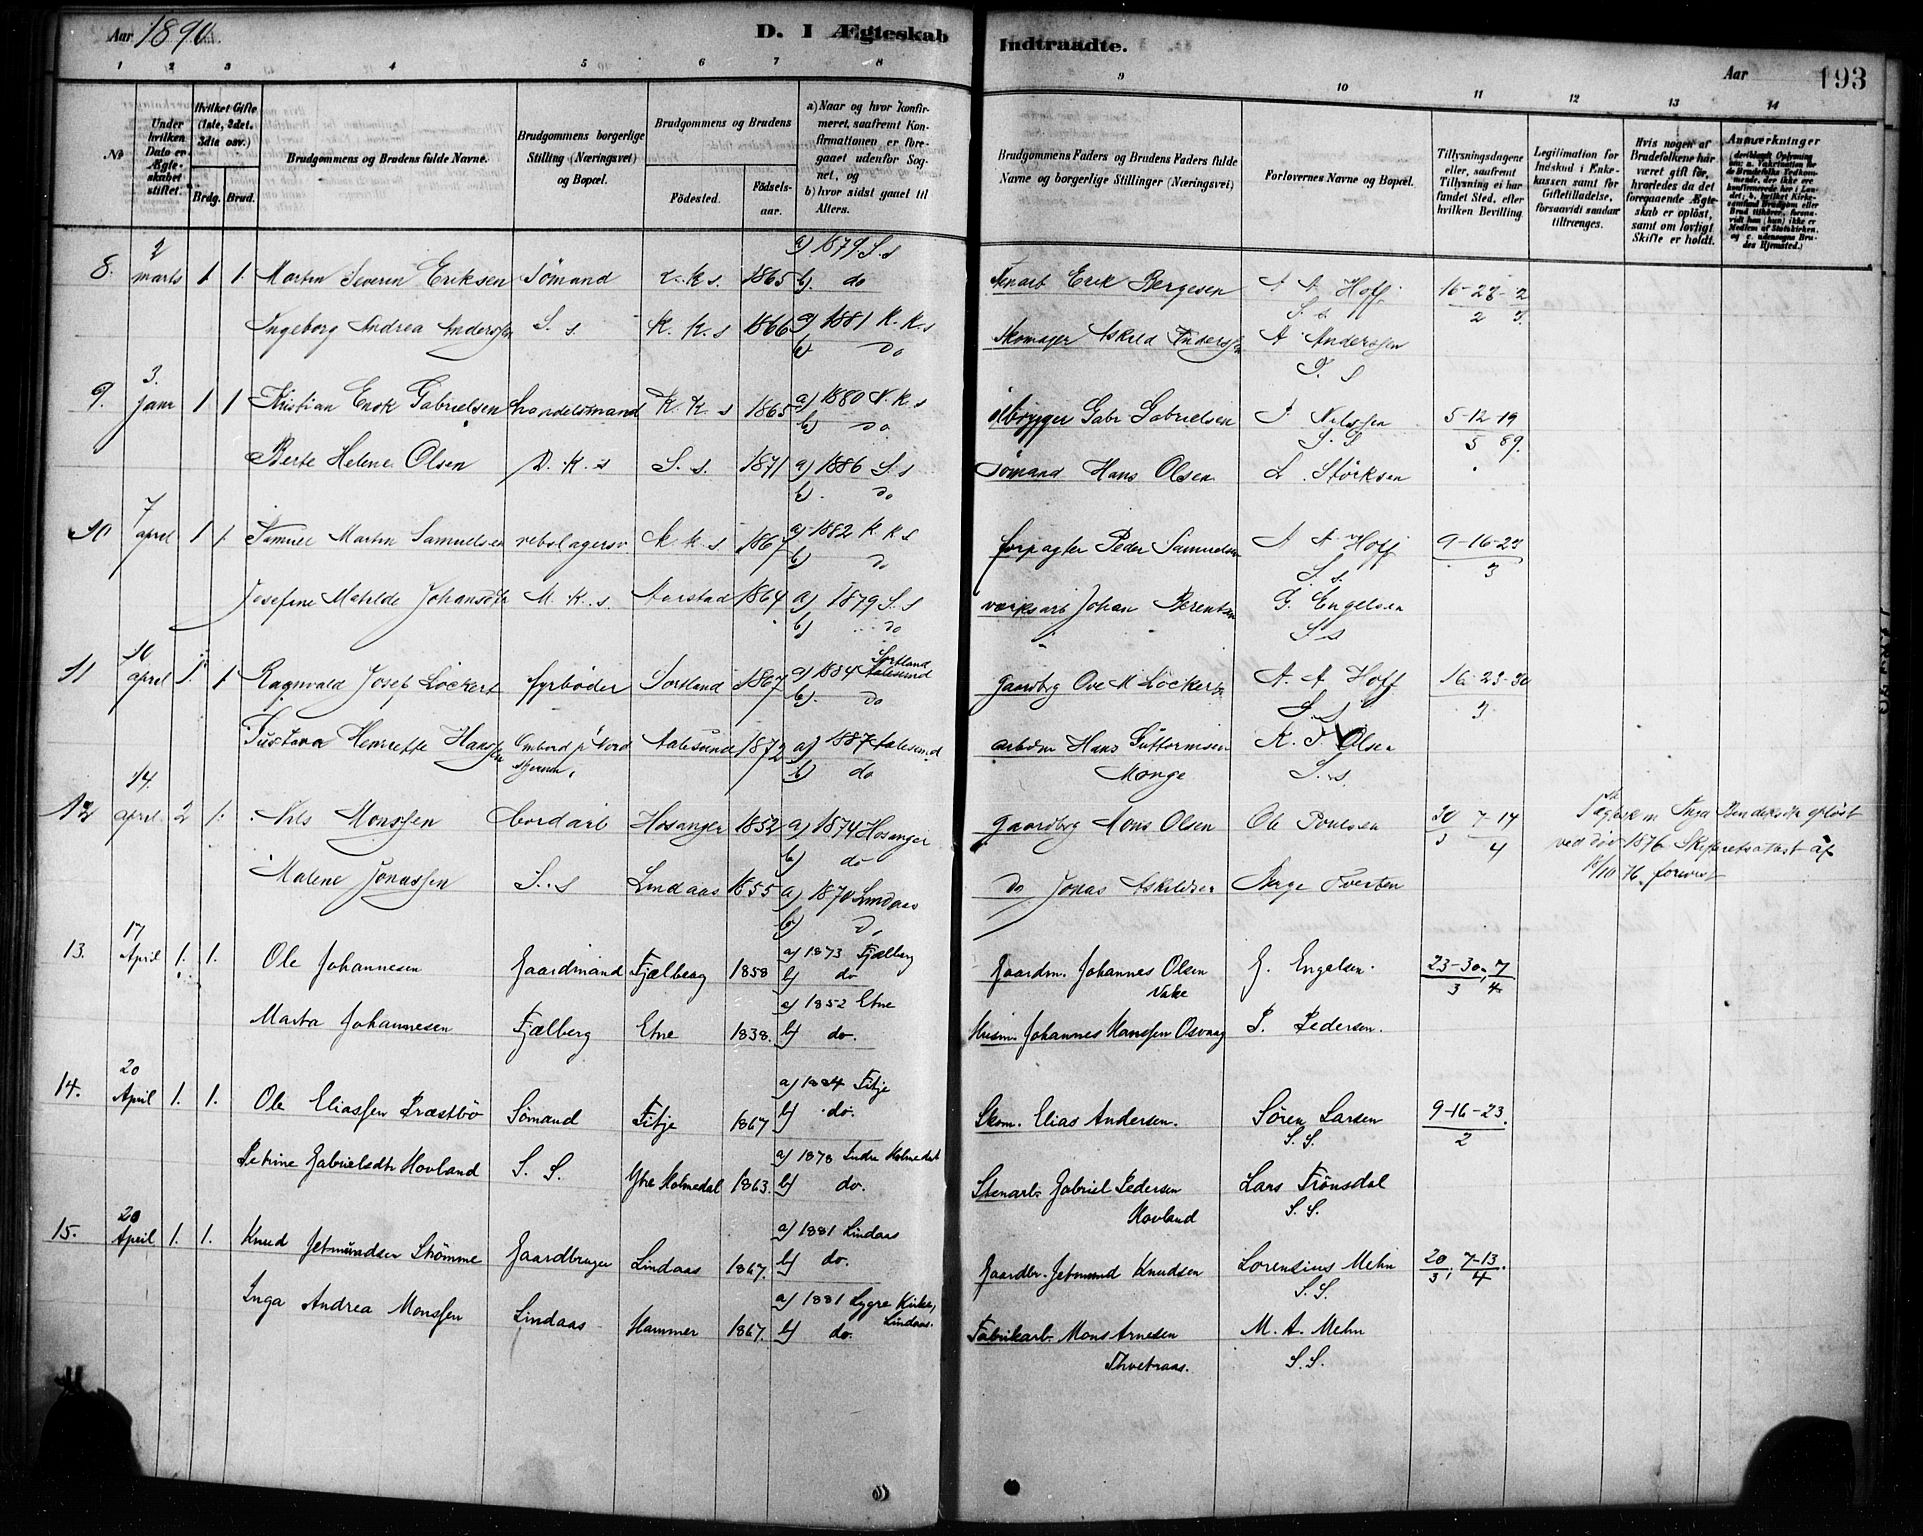 Aar 1890.
D. I Ægteskab Indtraadte.
Aar 193
1 2 3 4 5 6 7 8 9 10 11 12 13 14
No
Under hvilken Dato er Ægteskabet stiftet.
Hvilket Gifte (1ste, 2det, 3die osv.)
Brdg. Brud.
Brudgommens og Brudens fulde Navne.
Brudgommens borgerlige Stilling (Næringsvei) og Bopæl.
Brudgommens og Brudens
Födested. Födselsaar.
a) Naar og hvor konfirmeret, saafremt Konfirmationen er foregaaet udenfor Sognet, og
b) hvor sidst gaaet til Alters.
Brudgommens Faders og Brudens Faders fulde Navne og borgerlige Stillinger (Næringsvei)
Forlovernes Navne og Bopæl.
Tillysningsdagene eller, saafremt Tillysning ei har fundet Sted, efter hvilken Bevilling.
Legitimation for Indskud i Enkekassen samt for Giftetilladelse, forsaavidt saadant tiltrænges.
Hvis nogen af Brudefolkene har været gift før, hvorledes da det foregaaende Ægteskab er oplöst, samt om lovligt Skifte er holdt.
Anmærkninger
8. 2 marts 1. 1. Martin Severin Eriksen Sömand 1865 a) 1879 S. s b) do Erik Bergesen A A Hoff S s 16-23-2
Ingeborg Andrea Anderssen S. s K. K. s 1866 a) 1881 K. K. s b) do Skomager Askild Anderssen A Anderssen S. s
9. 3. janr 1 1 Kristian Enok Gabrielsen handelsmand K. K. s 1865 a) 1880 N. K. s b) do ölbrygger Gabr Gabrielsen Nilssen S. S 5-12-19 5 89.
Berte Helene Olsen D. K. s S. s. 1871 a) 1886 S. s b) do Sömand Hans Olsen L. Störksen
10 7 april 1 1. Samuel Martin Samuelsen K. K. s 1867 a) 1882 K K s b) do forpagter Peder Samuelsen A A Hoff S. s. 9-16-23 3
Josefine Matilde Johansdtr M. K. s. Aarstad 1864 a) 1879 S. s b) do værksarb Johan Berentsen G. Engelsen S s
11 10 april 1. 1 Ragnvald Josef Löckert fyrböder Sortland 1867 a) 1884 Sortland Aalesund b) do Gaardbrg Ove M Löckert A. A Hoff S. s 16-23-30 3
Gustava Henriette Hanssen Ombord p' Nord stjernen, Aalesund 1872 a) 1887 Aalesund b) do arbdm Hans Guttormsen Monge K. T Olsen S. s
12 14. april 2 1. Nils Monssen bordarb Hosanger 1852 a) 1874 Hosanger b) do gaardbrg Mons Olsen Ole Poulsen 30 7-14 3 4
ved död 1876 Skifteretsattest af
Malene Jonassen S. s Lindaas 1855 a) 1870 Lindaas b) do Jonas Askildsen Berge Tverten
13. 17 April 1. 1. Ole Johannesen Gaardmand Fjælberg 1858 a) 1873 Fjælberg b) do Gaardm. Johannes Olsen G. Engelsen. 23-30, 7 3 4
Marta Johannesen Fjælberg Etne 1838. a) 1852 Etne b) do. Husm. Johannes Hanssen Osvaag P. Pedersen.
14. 20 April 1. 1. Ole Eliassen Præstbö Sömand Fitje 1867 a) 1884 Fitje b) do. Skom. Elias Andersen. Sören Larsen S. S. 9-16-23. 2
Petrine Gabrielsdtr Hovland S. S. Ytre Holmedal 1863. a) 1878 Indre Holmedal b) do. Stenarb. Gabriel Pedersen Hovland Lars Trönsdal S. S.
15. 20 April 1. 1. Knud Jetmundsen Strömme Gaardbruger Lindaas 1867. a) 1881 Lindaas b) do. Gaardbr. Jetmund Knudsen Lorensius Mehn S. S. 20 7-13 3 4
Inga Andrea Monssen Lindaas Hammer 1867. a) 1881 Lygre Kirke, Lindaas. b) do. Fabrikarb. Mons Arnesen M. A. Mehn S. S.